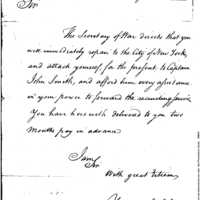 Sir
The Secretary of War directs that you
will immediately repair to the City of New York,
and attach yourself, for the present to Captain
John Smith, and afford him every assistance
in your power to forward the recruiting service
You have herewith delivered to you two
Months pay in advance
I am
Sir
With great Esteem